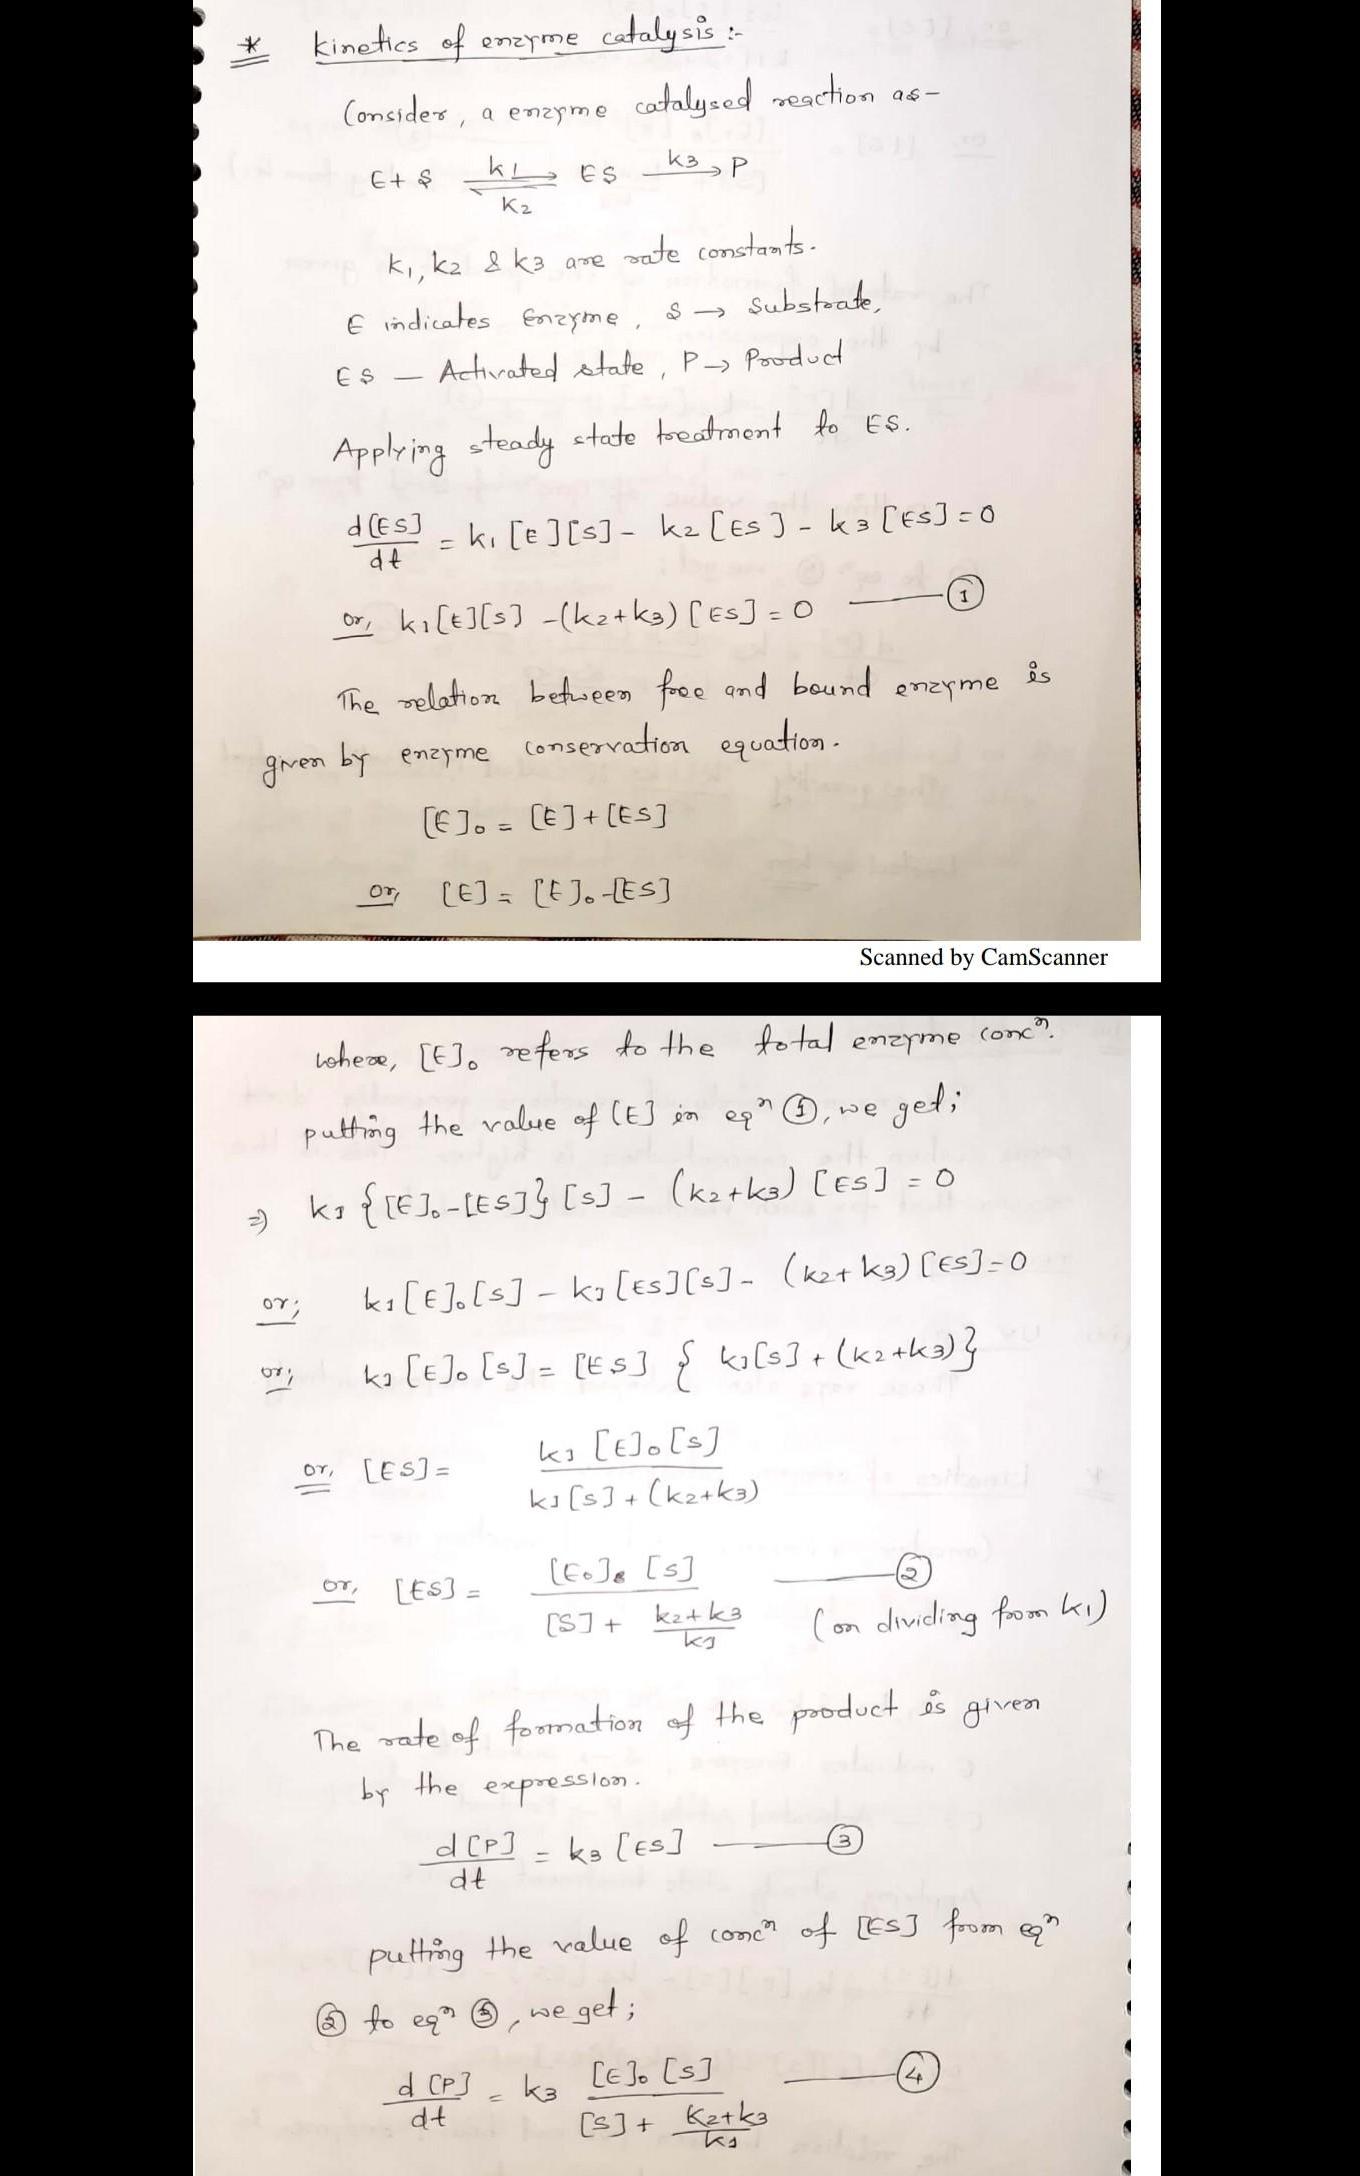 * Kinetics of enzyme catalysis :-
Consider, a enzyme catalysed reaction as-
E+ S ⇌ ES → P
k1 k3
k2
k1, k2 & k3 are rate constants.
E indicates Enzyme, S → Substrate,
ES — Activated state, P → Product
Applying steady state treatment to ES.
d[ES]/dt = k1 [E][S] - k2 [ES] - k3 [ES] = 0
or, k1[E][S] -(k2+k3) [ES] = 0 —— ①
The relation between free and bound enzyme is
given by enzyme conservation equation.
[E]₀ = [E] + [ES]
or, [E] = [E]₀-[ES]
Scanned by CamScanner
where, [E]₀ refers to the total enzyme concⁿ.
putting the value of [E] in eqⁿ ①, we get;
⇒ k1 {[E]₀-[ES]} [S] - (k2+k3) [ES] = 0
or; k1[E]₀[S] - k1[ES][S] - (k2+k3) [ES] = 0
or; k1 [E]₀ [S] = [ES] { k1[S] + (k2+k3)}
or, [ES] = k1 [E]₀[S] / k1[S] + (k2+k3)
or, [ES] = [E₀]₀ [S] / [S] + k2+k3/k1 —— ②
(on dividing from k1)
The rate of formation of the product is given
by the expression.
d[P]/dt = k3 [ES] —— ③
putting the value of concⁿ of [ES] from eqⁿ
② to eqⁿ ③, we get;
d[P]/dt = k3 [E]₀ [S] / [S] + k2+k3/k1 —— ④